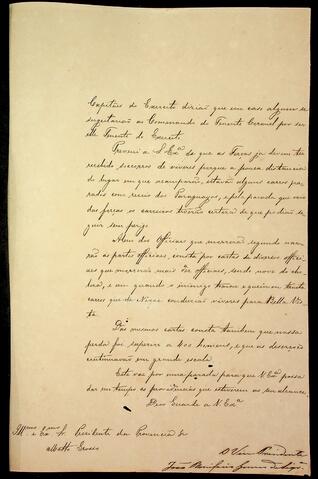 Capitães do Exercito dizião que em caso algum se
sugeitarião ao Comando do Tenente Coronel por ser
elle Tenente do Exercito.
Preveni a S. Exª de que as Forças ja devem ter
recebido socorros de viveres porque a pouca distancia
do lugar em que acamparão, estavão alguns carros pa-
rados com receio dos Paraguayos, e pela parada que
das forças os carreiros tiverão certeza de que podião se-
guir sem perigo.
Alem dos Officiaes que morrerão segundo nar-
rão as partes officiaes, consta por cartas de diversos offici-
aes que morrerão mais tres officiaes, sendo nove de cho-
lera, e que quando o inimigo tomou e queimou trinta
carros que de Nioac conduzião viveres para Bella Vis-
ta.
Das mesmas cartas consta tambem que nossa
perda foi superior a 400 homens, e que as deserções
continuavão em grande escala.
Esta vai por uma parada para que V. Exª possa
dar em tempo as providencias que estiverem ao seu alcance.
Deos Guarde a V. Exª
Illmo e Exmo Sr. Presidente da Provincia de
Matto Grosso
O Vice Presidente
João Bonifacio Gomes de